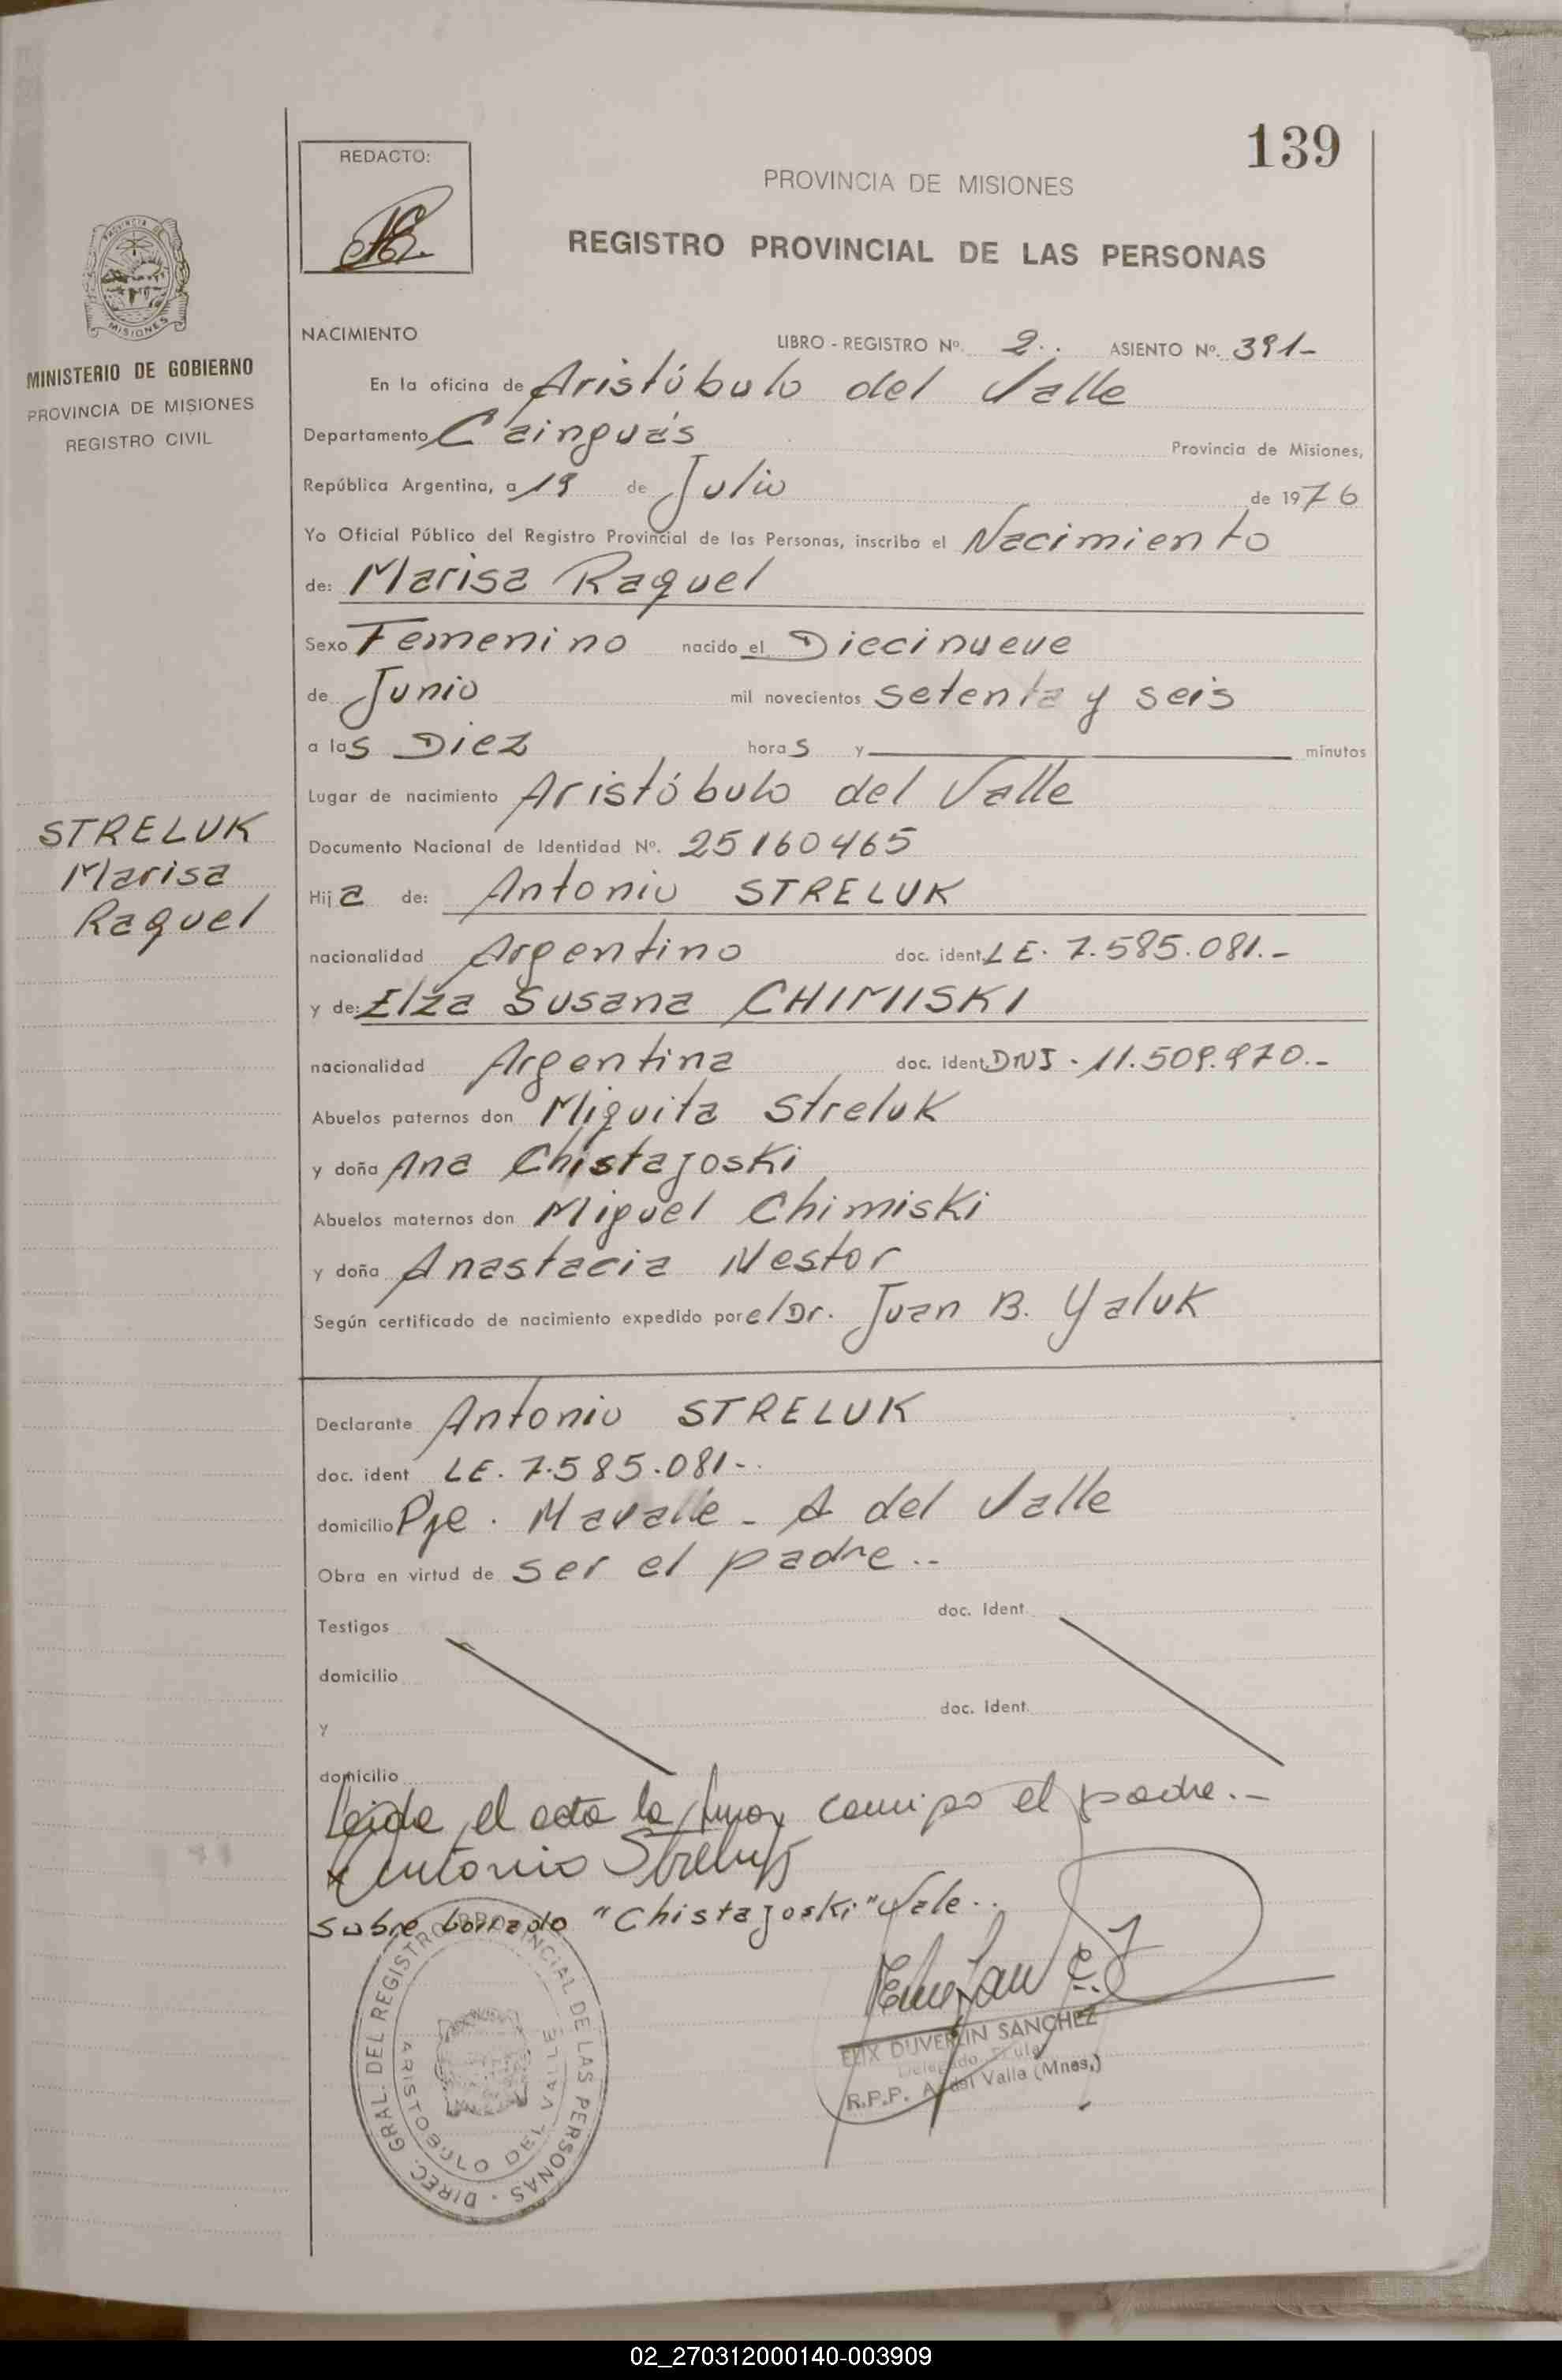 139
REDACTO:
PROVINCIA DE MISIONES
REGISTRO PROVINCIAL DE LAS PERSONAS
MINISTERIO DE GOBIERNO
PROVINCIA DE MISIONES
REGISTRO CIVIL
NACIMIENTO LIBRO - REGISTRO Nº. 2.. ASIENTO Nº. 391-
En la oficina de Aristóbulo del Valle
Departamento Cainguás Provincia de Misiones,
República Argentina, a 19 de Julio de 1976
Yo Oficial Público del Registro Provincial de las Personas, inscribo el Nacimiento
de: Marisa Raquel
Sexo Femenino nacido el Diecinueve
de Junio mil novecientos setenta y seis
a las Diez horas y minutos
Lugar de nacimiento Aristóbulo del Valle
STRELUK
Marisa
Raquel
Documento Nacional de Identidad Nº. 25160465
Hija de: Antonio STRELUK
nacionalidad Argentino doc. ident. LE. 7.585.081.-
y de: Elza Susana CHIMISKI
nacionalidad Argentina doc. ident. DNI - 11.509.970.-
Abuelos paternos don Miquita Streluk
y doña Ana Chistajoski
Abuelos maternos don Miguel Chimiski
y doña Anastacia Nestor
Según certificado de nacimiento expedido por el Dr. Juan B. Yaluk
Declarante Antonio STRELUK
doc. ident LE. 7.585.081-.
domicilio Pje. Mavalle - A del Valle
Obra en virtud de ser el padre..
Testigos doc. Ident.
domicilio
y doc. Ident.
domicilio
Leida el acta la firma conmigo el padre.-
x Antonio Streluk
Sobre borrado "Chistajoski" Vale..
DIREC. GRAL. DEL REGISTRO PROVINCIAL DE LAS PERSONAS
ARISTOBULO DEL VALLE
ELIX DUVERLIN SANCHEZ
Delegado Titular
R.P.P. A. del Valle (Mnes.)
02_270312000140-003909